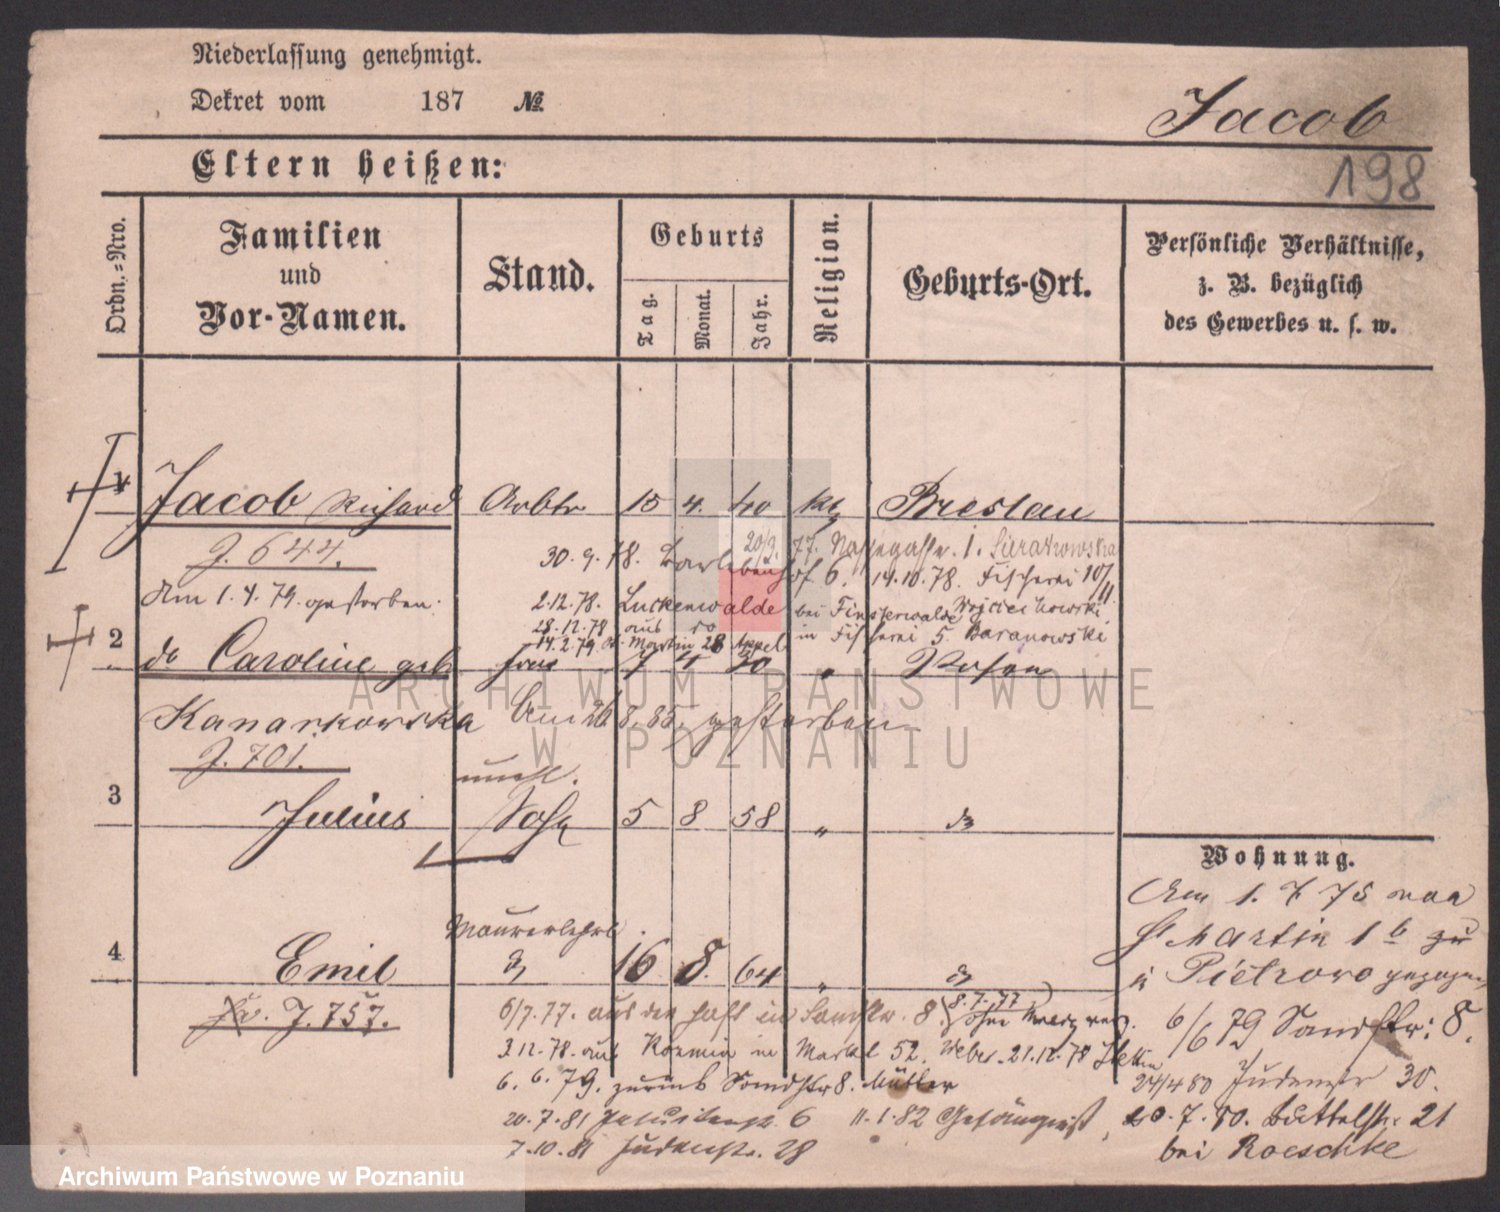 Niederlassung genehmigt.
Dekret vom 187 №
Jacob
198
Eltern heißen:
Ordn.=Nro.
Familien
und
Vor-Namen.
Stand.
Geburts
Tag.
Monat.
Jahr.
Religion.
Geburts-Ort.
Persönliche Verhältnisse,
z. B. bezüglich
des Gewerbes u. s. w.
1 Jacob Richard Arbtr 15 4. 40 kt Breslau
J. 644.
20/9. 77.
30. 9. 78. 6. 14.10.78. Fischerei 10/II
Am 1. 4. 79. gestorben.
2.12.78. Luckenwalde bei Finsterwalde Wojciechowski
28.12.78 aus in Fischerei 5. Baranowski
14.2.79 St. Martin 28 Appel
2 do Caroline geb. Frau 7 4 30 " Posen
Kanarkowska Am 26 8. 85. gestorben
J. 701.
unehl.
3 Julius Sohn 5 8 58 " do
Wohnung.
Am 1. 7 75 von
St Martin 1 b zu
Maurerlehrl.
4 Emil do 16 8. 64 " do
Pietrowo gezogen
J. 757.
6/7. 77. aus der Haft in Sandstr. 8 8. 7. 77
6/6 79 Sandstr: 8.
3 12. 78. aus Kozmin in Markt 52. Weber. 21.12.78 Stettin
6. 6. 79. zurück Sandstr 8. Müller
24/4 80 Judenstr 30.
20. 7. 81 6 11. 1. 82 Gefängniß,
7. 80. Büttelstr. 21
7. 10. 81 Judenstr. 28
bei Roeschke
ARCHIWUM PAŃSTWOWE
W POZNANIU
Archiwum Państwowe w Poznaniu